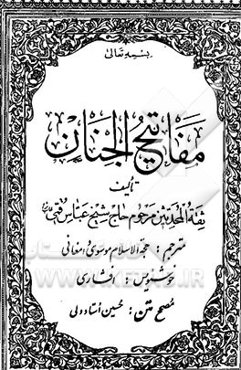 بسمه تعالی
مفاتیح الجنان
تألیف
ثقة المحدثین مرحوم حاج شیخ عباس قمی
مترجم : حجة الاسلام موسوی دامغانی
خوشنویس : افشاری
مصحح متن : حسین استاد ولی